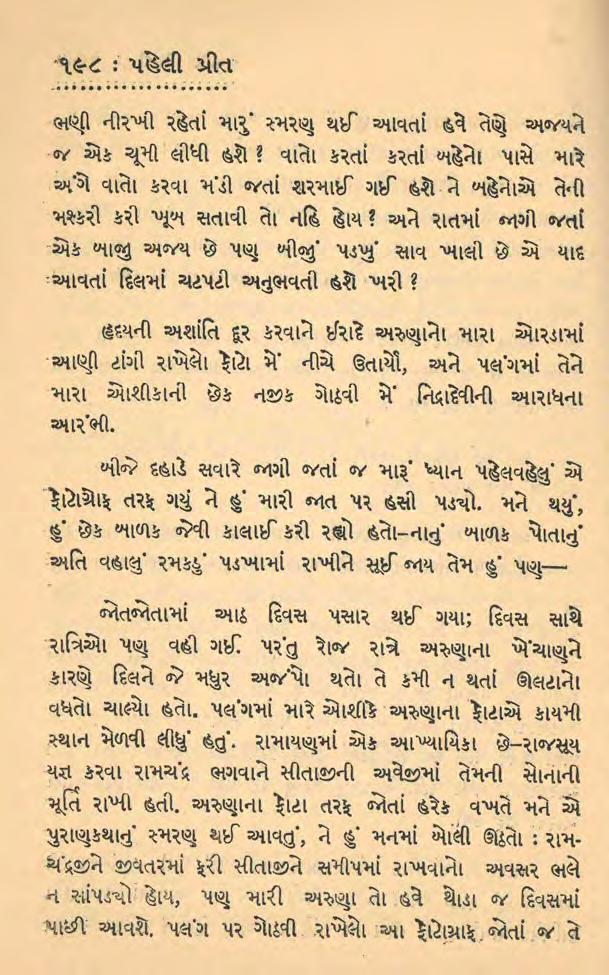 ૧૯૮ : પહેલી પ્રીત
ભણી નીરખી રહેતાં મારું સ્મરણ થઈ આવતાં હવે તેણે અજયને
જ એક ચૂમી લીધી હશે ? વાતો કરતાં કરતાં બહેનો પાસે મારે
અંગે વાતો કરવા મંડી જતાં શરમાઈ ગઈ હશે ને બહેનોએ તેની
મશ્કરી કરી ખૂબ સતાવી તો નહિ હોય ? અને રાતમાં જાગી જતાં
એક બાજુ અજય છે પણ બીજું પડખું સાવ ખાલી છે એ યાદ
આવતાં દિલમાં ચટપટી અનુભવતી હશે ખરી ?
હૃદયની અશાંતિ દૂર કરવાને ઈરાદે અરુણાનો મારા ઓરડામાં
આણી ટાંગી રાખેલો ફોટો મેં નીચે ઉતાર્યો, અને પલંગમાં તેને
મારા ઓશીકાની છેક નજીક ગોઠવી મેં નિદ્રાદેવીની આરાધના
આરંભી.
બીજે દહાડે સવારે જાગી જતાં જ મારૂં ધ્યાન પહેલવહેલું એ
ફોટોગ્રાફ તરફ ગયું ને હું મારી જાત પર હસી પડ્યો. મને થયું,
હું છેક બાળક જેવી કાલાઈ કરી રહ્યો હતો–નાનું બાળક પોતાનું
અતિ વહાલું રમકડું પડખામાં રાખીને સૂઈ જાય તેમ હું પણ—
જોતજોતામાં આઠ દિવસ પસાર થઈ ગયા; દિવસ સાથે
રાત્રિઓ પણ વહી ગઈ. પરંતુ રોજ રાત્રે અરુણાના ખેંચાણને
કારણે દિલને જે મધુર અજંપો થતો તે કમી ન થતાં ઊલટાનો
વધતો ચાલ્યો હતો. પલંગમાં મારે ઓશીકે અરુણાના ફોટાએ કાયમી
સ્થાન મેળવી લીધું હતું. રામાયણમાં એક આખ્યાયિકા છે–રાજસૂય
યજ્ઞ કરવા રામચંદ્ર ભગવાને સીતાજીની અવેજીમાં તેમની સોનાની
મૂર્તિ રાખી હતી. અરુણાના ફોટા તરફ જોતાં હરેક વખતે મને એ
પુરાણકથાનું સ્મરણ થઈ આવતું, ને હું મનમાં બોલી ઊઠતો : રામ-
ચંદ્રજીને જીવતરમાં ફરી સીતાજીને સમીપમાં રાખવાનો અવસર ભલે
ન સાંપડ્યો હોય, પણ મારી અરુણા તો હવે થોડા જ દિવસમાં
પાછી આવશે. પલંગ પર ગોઠવી રાખેલો આ ફોટોગ્રાફ જોતાં જ તે